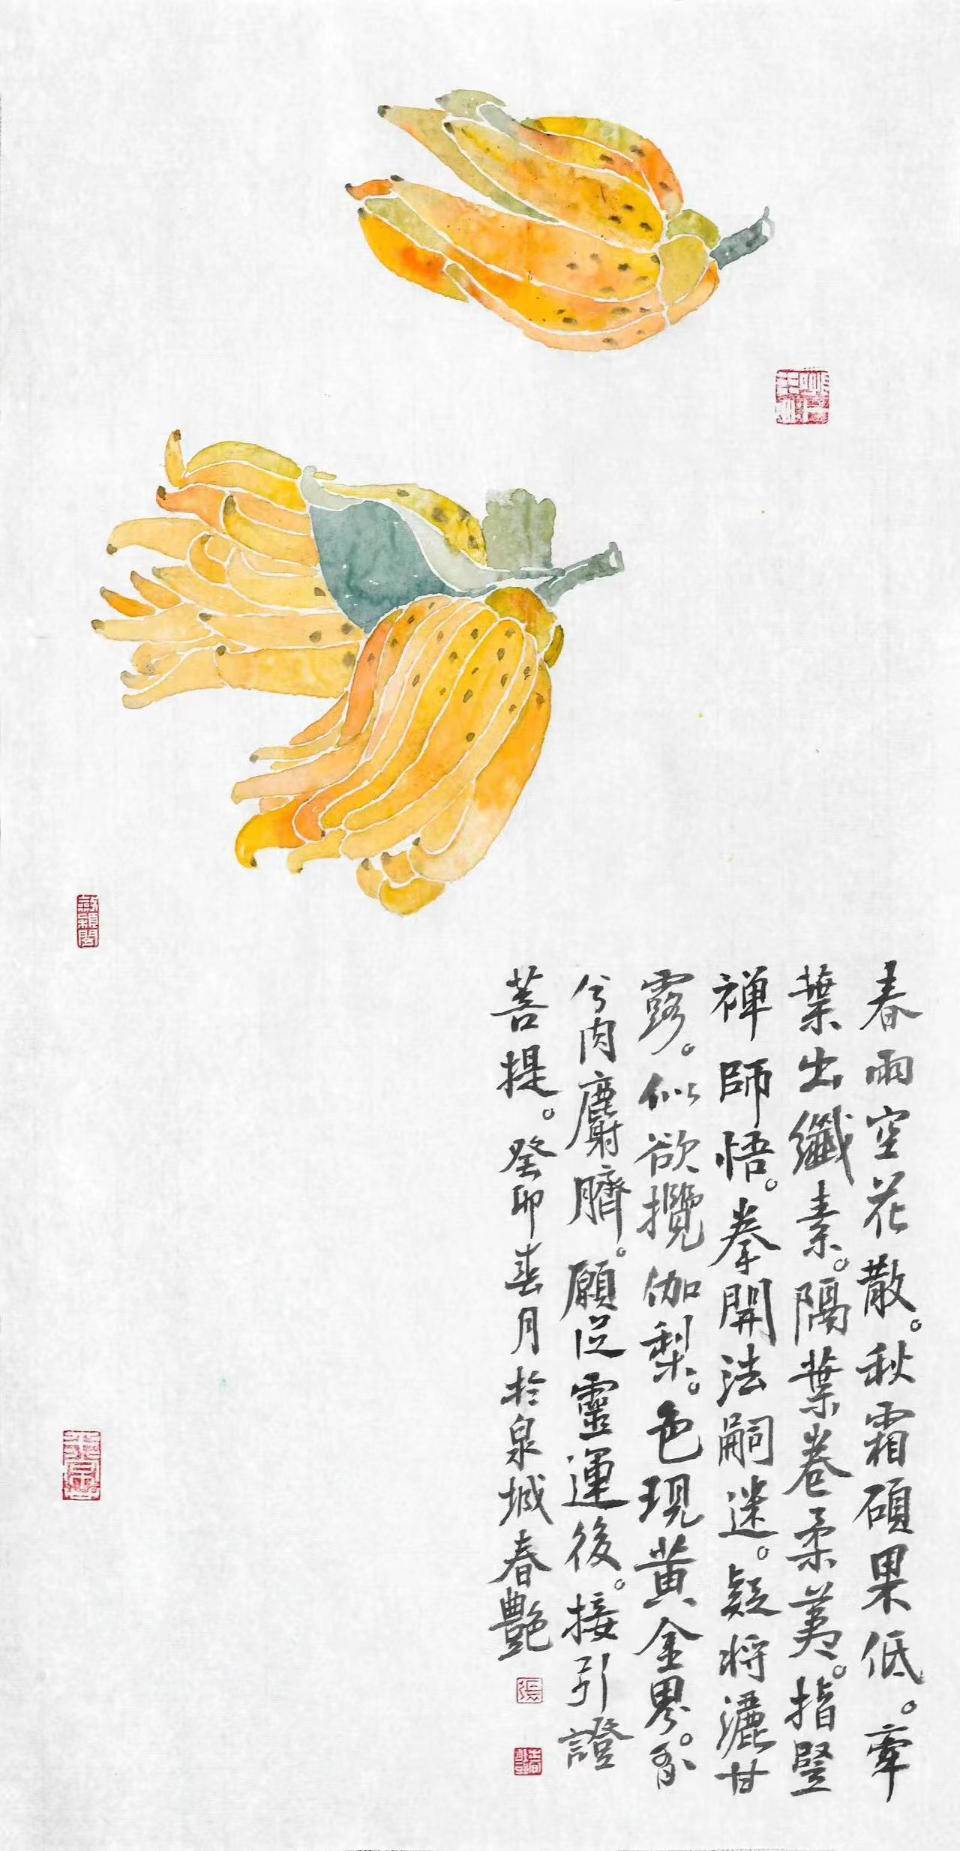 春雨空花散。秋霜碩果低。牽
葉出纖素。隔葉卷柔荑。指豎
禅師悟。拳開法嗣迷。疑将灑甘
露。似欲攬伽梨。色現黃金界。
兮肉麝臍。願從靈運後。接引證
菩提。癸卯春月於泉城春艷
張